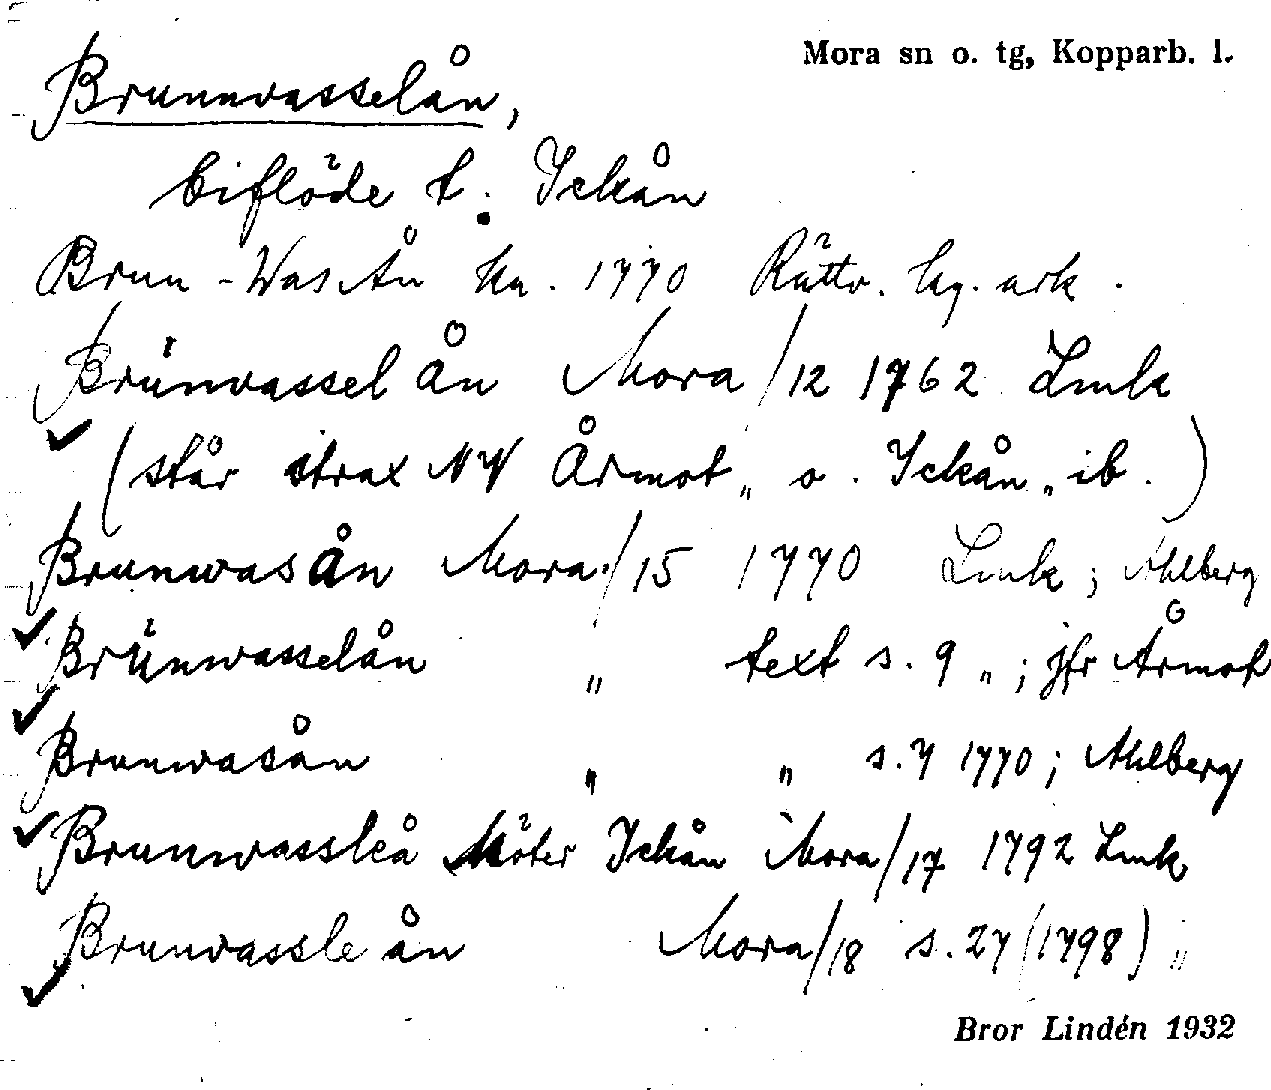 Mora sn o. tg, Kopparb. l.
Brunnvasselån,
biflöde t. Ickån
Brun-Was Ån ka. 1770 Rättv. hg. ark.
Brünvassel ån Mora/12 1762 Lmk
(står strax NV Årmot „ o. Ickån „ ib.)
Brunwas ån Mora/15 1770 Lmk; Ahlberg
Brünwasselån „ text s. 9 „; jfr Årmot
Brunwasån „ „ s. 7 1770; Ahlberg
Brunwassleå Möter Ickån Mora/17 1792 Lmk
Brunvassle ån Mora/18 s. 27 (1798) „
Bror Lindén 1932